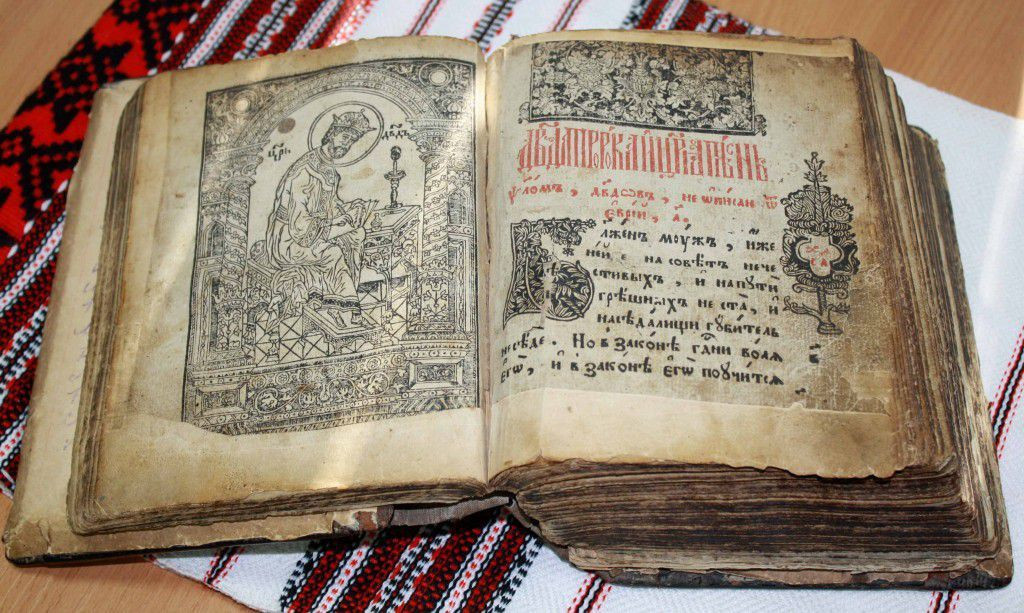 цр҃ь
дв҃дъ
Дв҃да прⷪ҇рка и цр҃ѧ пѣснь
ѱл҃омъ, дв҃довъ, не ѡписанъ ѿ
еврей, а҃,
Бл҃женъ моужъ, иже
неиде на совѣтъ нече
стивыхъ, и напути
грѣшныхъ не ста, и
насѣдалищи губитель
не сѣде. Но в законѣ гдⷭ҇ни волѧ
егѡ, и в законѣ егѡ поучитсѧ